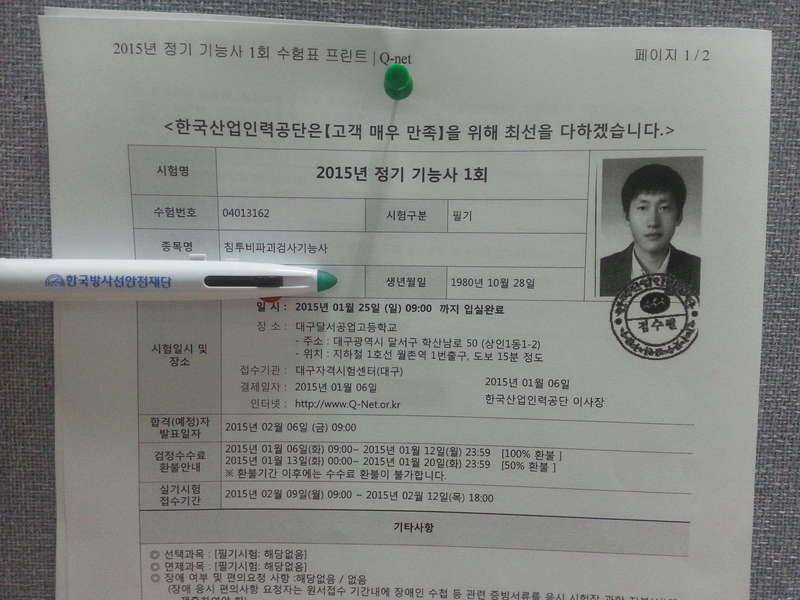 2015년 정기 기능사 1회 수험표 프린트 | Q-net 페이지 1 / 2
<한국산업인력공단은【고객 매우 만족】을 위해 최선을 다하겠습니다.>
시험명 2015년 정기 기능사 1회
수험번호 04013162 시험구분 필기
종목명 침투비파괴검사기능사
한국방사선안전재단 생년월일 1980년 10월 28일
시험일시 및 장소
일 시 : 2015년 01월 25일 (일) 09:00 까지 입실완료
장 소 : 대구달서공업고등학교
- 주소 : 대구광역시 달서구 학산남로 50 (상인1동1-2)
- 위치 : 지하철 1호선 월촌역 1번출구, 도보 15분 정도
접수기관 : 대구자격시험센터(대구)
결제일자 : 2015년 01월 06일 2015년 01월 06일
인터넷 : http://www.Q-Net.or.kr 한국산업인력공단 이사장
접수필
합격(예정)자 발표일자 2015년 02월 06일 (금) 09:00
검정수수료 환불안내
2015년 01월 06일(화) 09:00~ 2015년 01월 12일(월) 23:59 [100% 환불 ]
2015년 01월 13일(화) 00:00~ 2015년 01월 20일(화) 23:59 [50% 환불 ]
※ 환불기간 이후에는 수수료 환불이 불가합니다.
실기시험 접수기간 2015년 02월 09일(월) 09:00 ~ 2015년 02월 12일(목) 18:00
기타사항
◎ 선택과목 : [필기시험: 해당없음]
◎ 면제과목 : [필기시험: 해당없음]
◎ 장애 여부 및 편의요청 사항 :해당없음 / 없음
(장애 응시 편의사항 요청자는 원서접수 기간내에 장애인 수첩 등 관련 증빙서류를 응시 시험장 관할